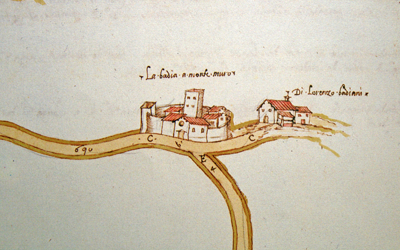 La badia a monte muro
Di Lorenzo
690
C
V
C